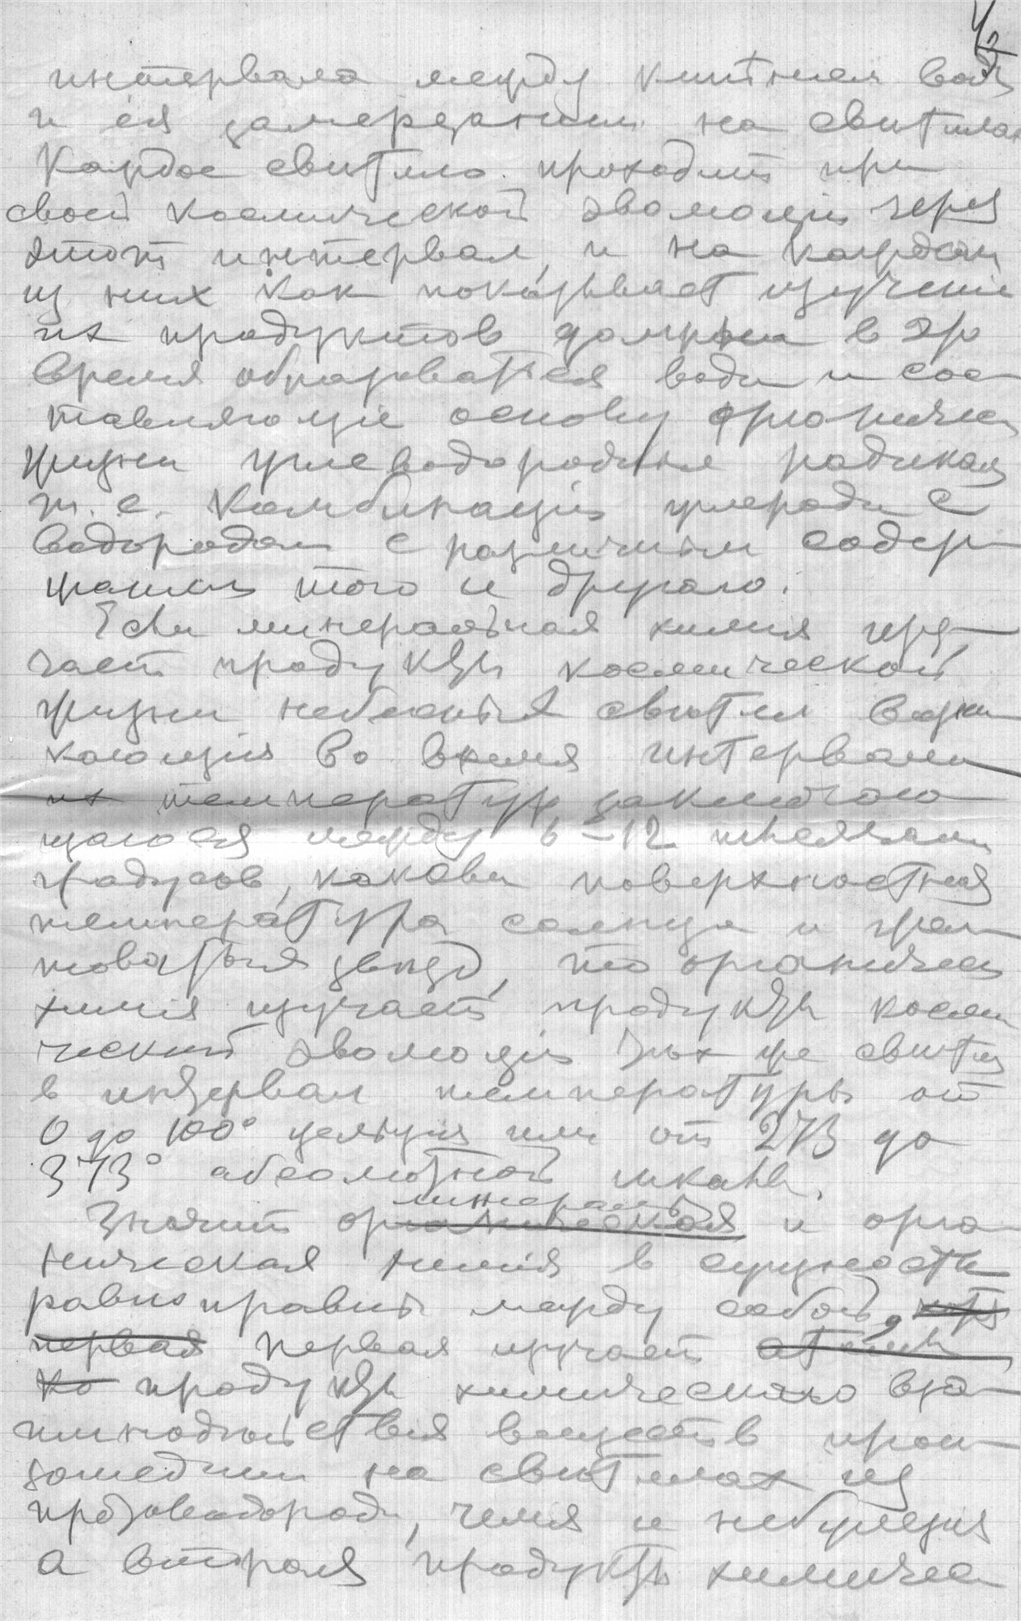 интервала между кипѣнием воды
и ея замерзанием на свѣтилах
Каждое свѣтило проходит при
своей космической эволюціи через
этот интервал, и на каждом
из них как показывает изученіе
их продуктов должны в это
время образоваться воды и сос-
тавляющіе основу органическ
жизни углеводородные радикалы
т. е. комбинаціи углерода с
водородом с различным содер-
жанием того и другого.
Если минеральная химия изу-
чает продукты космической
жизни небесных свѣтил
во время интервала
их температур заключаю-
щагося между 6-12 тысячами
градусов, какова поверхностная
температура солнца и жел-
товатых звѣзд, то органическ
химія изучает продукты косми
ческой эволюціи тѣх же свѣтил
в интервал температуры от
0 до 100° цельзия или от 273 до
373° абсолютной шкалы.
минеральн
Значит органическая и орга-
ническая химія в сущности
равноправны между собой,
первая первая изучает атомы
но продукты химическаго вза-
имодѣйствия веществ прои-
зошедшим на свѣтилах из
протоводорода, гелия и небулезия
а вторая продукты химическ